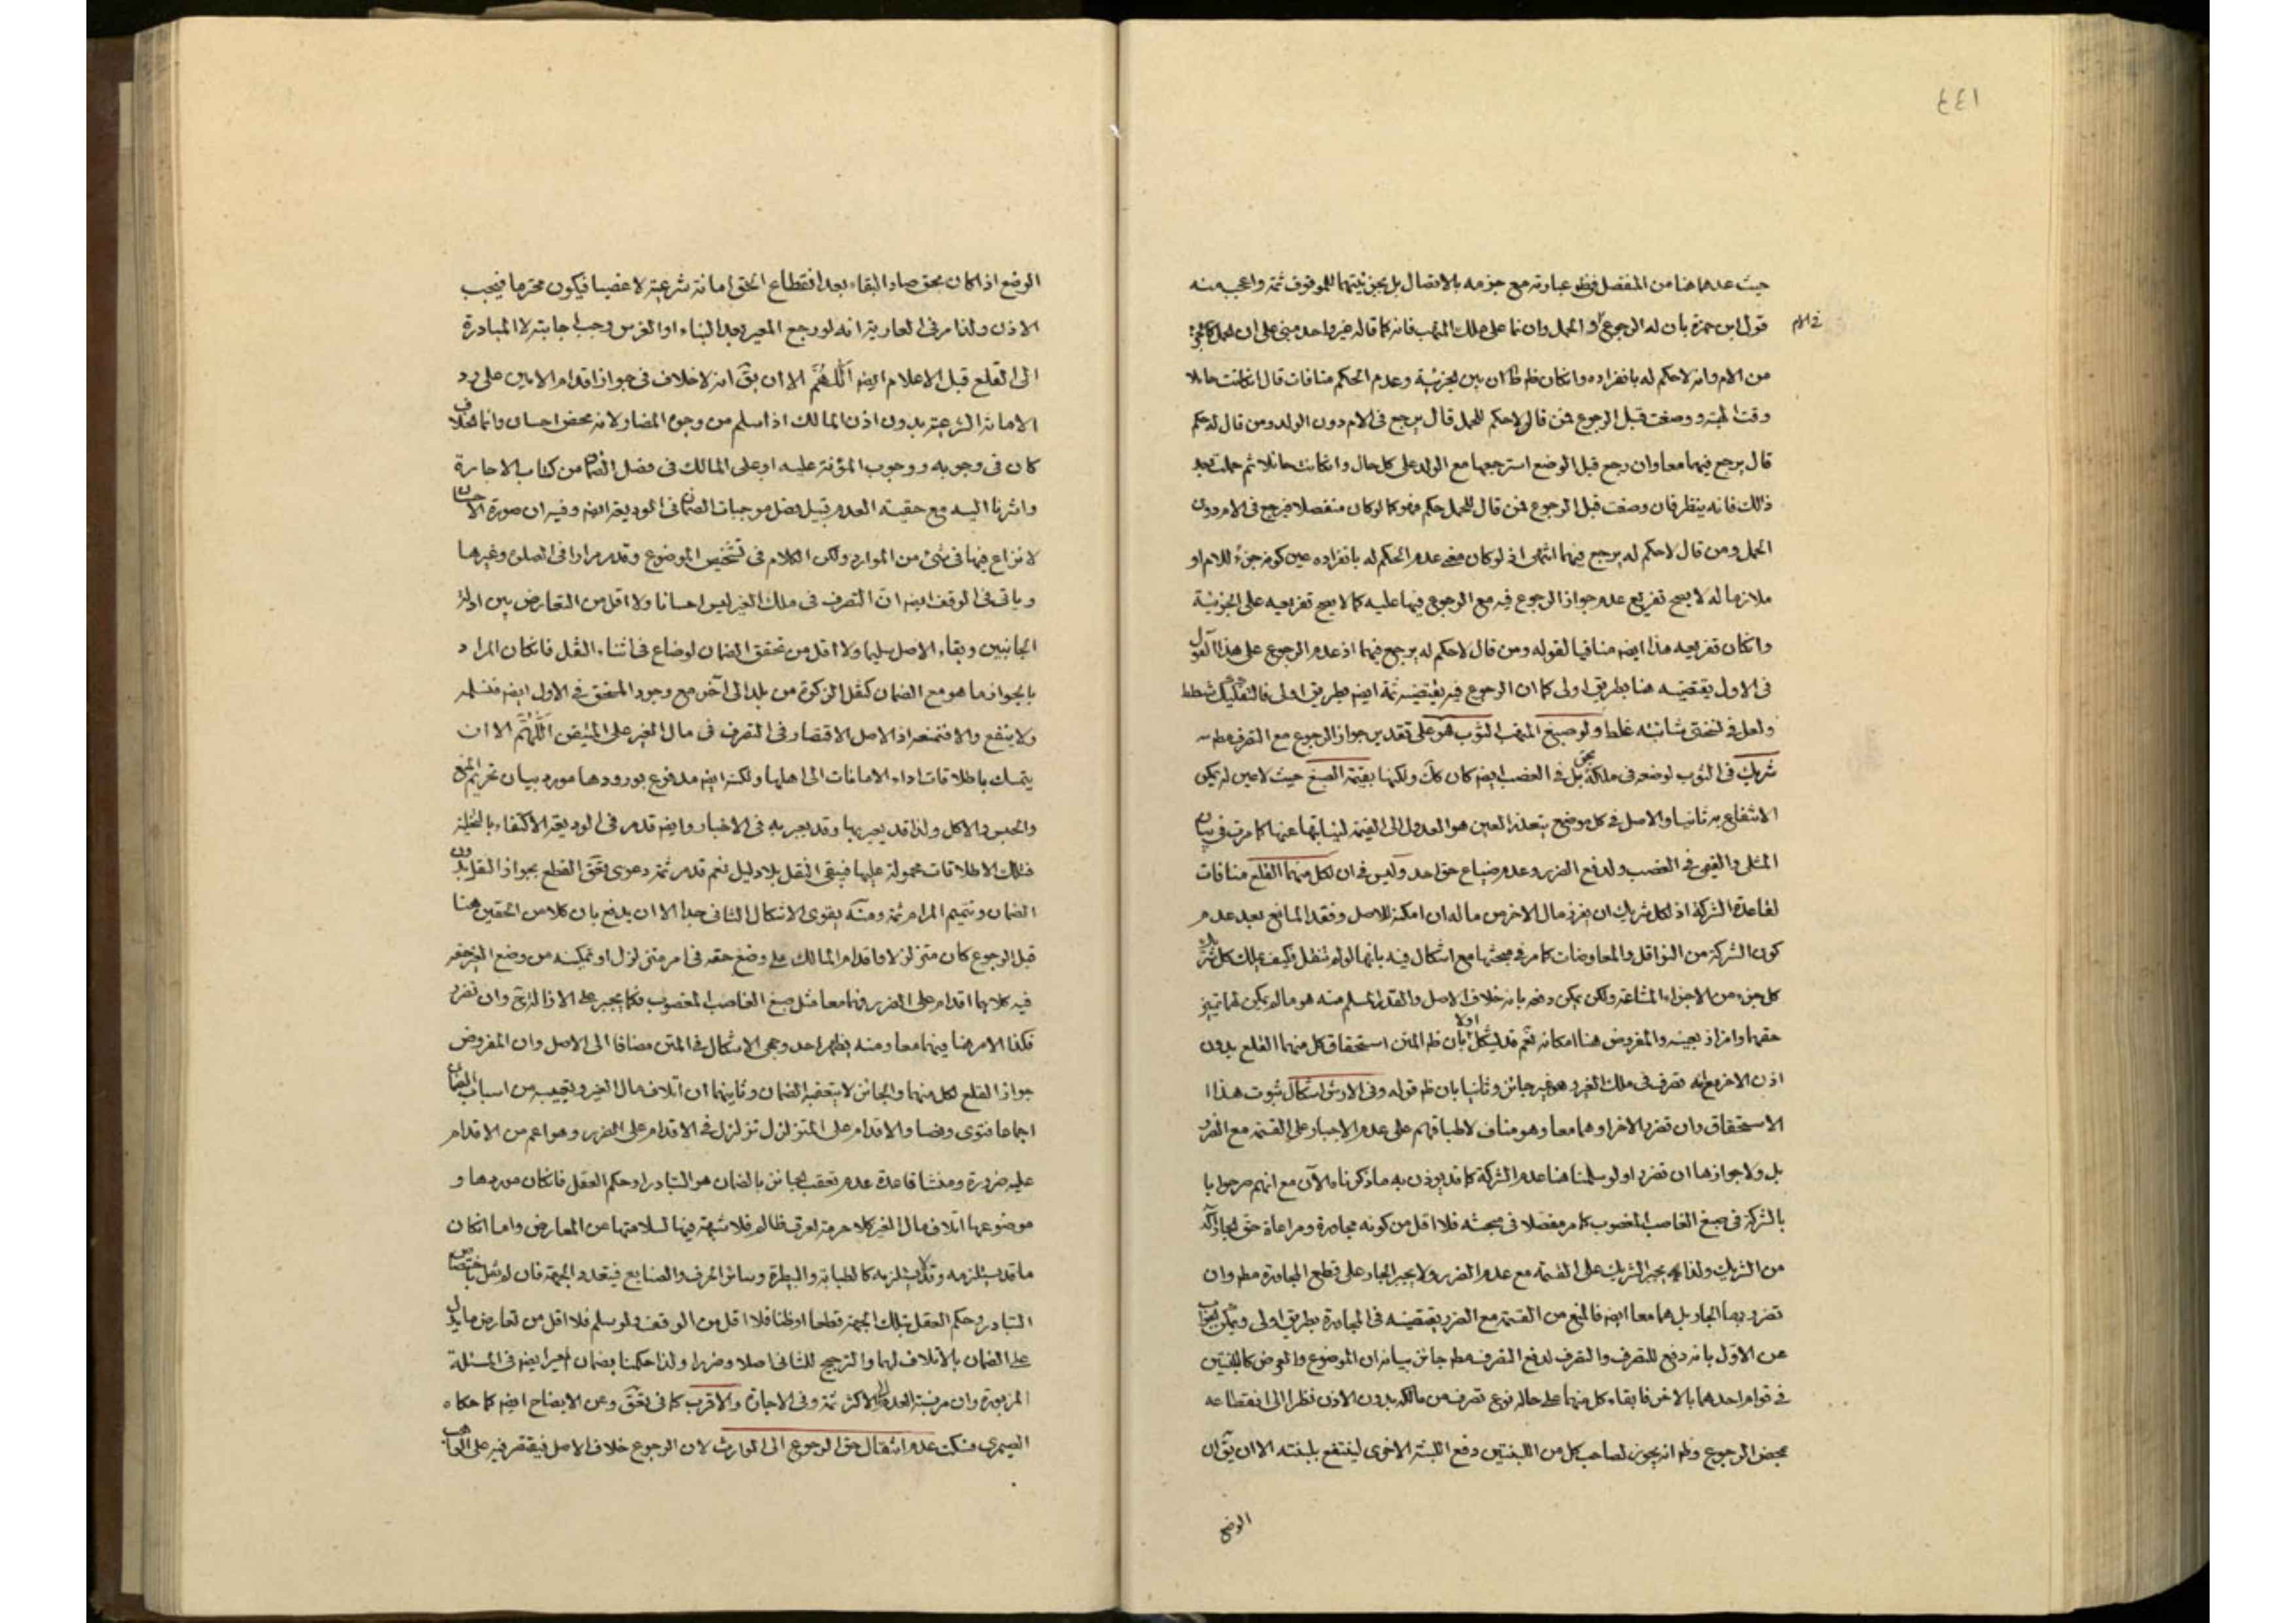 ٤٤١
حيث عدهما هنا من المنفصل فظهر عبارته مع جزمه بالاتصال بل بجزئيتهما للموقوف ثمة واعجب منه
قول ابن حمزة بان له الرجوع و الحمل وان نما على ملك المتهب فانه كما قاله غير واحد مبنى على ان الحمل كالجزء
فى الام
من الام وانه لا حكم له بانفراده وانكان ظم ان بين الجزئية وعدم الحكم منافات قال اذا كانت حاملا
وقت الهبة ووضعت قبل الرجوع فمن قال لا حكم للحمل قال يرجع فى الام دون الولد ومن قال له حكم
قال يرجع فيهما معا وان رجع قبل الوضع استرجعها مع الولد على كل حال وانكانت حائلا ثم حملت بعد
ذلك فانه ينظر فان وضعت قبل الرجوع فمن قال للحمل حكم فهو كما لو كان منفصلا فيرجع فى الام دون
الحمل ومن قال لا حكم له يرجع فيهما انتهى اذ لو كان معنى عدم الحكم له بانفراده عين كونه جزء للام او
ملازما له لا يصح تفريع عدم جواز الرجوع فيه مع الرجوع فيها عليه كما لا يصح تفريعه على الجزئية
وانكان تفريعه هذا ايضه منافيا لقوله ومن قال لا حكم له يرجع فيهما اذ عدم الرجوع على هذا القول
فى الاول يقتضيه هنا بطريق اولى كما ان الرجوع فيه يقتضيه ثمة ايضه بطريق اولى فالتفكيك شطط
ولعل فى نسختى شائبة غلط ولو صبغ المتهب الثوب فهو على تقدير جواز الرجوع مع التصرف مطم
شريك فى الثوب لوضعه فى ملكه بحق بل فى الغصب ايضه كان كك ولكنها بقيمة الصبغ حيث لا عين له يمكن
الانتفاع به ثانيا والاصل فى كل موضع يتعذر العين هو العدول الى القيمة لنيابتها عنها كما مر فى بيان
المثلى والقيمى فى الغصب ولدفع الضرر وعدم ضياع حق احد وليس فى ان لكل منهما القلع منافات
لقاعدة الشركة اذ لكل شريك ان يفرز مال الاخر من ماله ان امكنه للاصل وفقد المانع بعد عدم
كون الشركة من النواقل والمعاوضات كما مر فى مبحثها مع اشكال فيه بانها لو لم تنقل فكيف يملك كل شريك
كل جزء من الاجزاء المشاعة ولكن يمكن دفعه بانه خلاف الاصل والقدر المسلم منه هو ما لم يمكن تمييز
حقهما وافراز بعينه والمفروض هنا امكانه نعم قد يشكل اولا بان ظم المتن استحقاق كل منهما القلع بدون
اذن الاخر مع انه تصرف فى ملك الغير وهو غير جائز وثانيا بان ظم قوله وفى الارش اشكال ثبوت هذا
الاستحقاق وان تضرر الاخر او هما معا وهو مناف لاطباقهم على عدم الاجبار على القسمة مع الضرر
بل ولا جوازها ان تضررا ولو سلمنا هنا عدم الشركة كما قد يوذن به ما ذكرنا الآن مع انهم صرحوا
بالشركة فى صبغ الغاصب المغصوب كما مر مفصلا فى مبحثه فلا اقل من كونه مجاورة ومراعاة حق الجار آكد
من الشريك ولذا يجبر الشريك على القسمة مع عدم الضرر ولا يجبر الجار على قطع المجاورة مطم وان
تضرر بها الجار بل هما معا ايضه فالمنع من القسمة مع الضرر يقتضيه فى المجاورة بطريق اولى ويمكن الجواب
عن الاول بانه دفع للتصرف والتصرف لدفع التصرف مطم جائز بيانه ان الموضوع والعرض كاللبنتين
فى قوام احدهما بالاخر فابقاء كل منهما على حاله نوع تصرف من مالكه بدون الاذن نظرا الى انقطاعه
بمحض الرجوع وظم انه يجوز لصاحب كل من اللبنتين دفع اللبنة الاخرى لينتفع بلبنته الا ان يقال
الوضع
الوضع اذا كان بحق صار البقاء بعد انقطاع الحق امانة شرعية لا غصبا فيكون محترما فيجب
الاذن ولذا مر فى العارية انه لو رجع المعير بعد البناء او الغرس وجب اجابته لا المبادرة
الى القلع قبل الاعلام ايضه اللهم الا ان يق انه لا خلاف فى جواز اقدام الامين على رد
الامانة الشرعية بدون اذن المالك اذا سلم من وجوه المضار لانه محض احسان وانما الخلاف
كان فى وجوبه ووجوب المؤنة عليه او على المالك فى فصل الضمان من كتاب الاجارة
واشرنا اليه مع حقيته العدم قبيل فصل موجبات الضمان فى الوديعة ايضه وفيه ان صورة الاحسان
لا نزاع فيها فى شئ من الموارد ولكن الكلام فى تشخيص الموضوع وقد مر مرارا فى الصلوة وغيرها
وياتى فى الوقف ايضه ان التصرف فى ملك الغير ليس احسانا ولا اقل من التعارض بين ادلة
الجانبين وبقاء الاصل سليما ولا اقل من تحقق الضمان لو ضاع فى اثناء النقل فانكان المراد
بالجواز ما هو مع الضمان كنقل الزكوة من بلد الى آخر مع وجود المستحق فى الاول ايضه فنسلمه
ولا ينفع والا فنمنعه اذ الاصل الاقتصار فى التصرف فى مال الغير على المتيقن اللهم الا ان
يتمسك باطلاقات اداء الامانات الى اهلها ولكنه ايضه مدفوع بورودها مورد بيان تحريم المنع
والحبس والاكل ولذا قد يعبر بها وقد يعبر به فى الاخبار وايضه قد مر فى الوديعة الاكتفاء بالتخلية
فتلك الاطلاقات محمولة عليها فيبقى النقل بلا دليل نعم قد مر ثمة دعوى تحقق القطع بجواز النقل بدون
الضمان وتتميم المرام ثمة ومنه يقوى الاشكال الثانى جدا الا ان يدفع بان كلا من الحقين هنا
قبل الرجوع كان متزلزلا واقدام المالك على وضع حقه فى امر متزلزل او تمكينه من وضع الغير حقه
فيه كلاهما اقدام على الضرر فهما معا مثل صبغ الغاصب المغصوب فكما يجبر على الازالة ثمة وان تضرر
فكذا الامر هنا فيهما معا ومنه يظهر احد وجهى الاشكال فى المتن مضافا الى الاصل وان المفروض
جواز القلع لكل منهما والجائز لا يتعقبه الضمان وثانيهما ان اتلاف مال الغير وتعييبه من اسباب الضمان
اجماعا فتوى ونصا والاقدام على المتزلزل تزلزل فى الاقدام على الضرر وهو اعم من الاقدام
عليه ضرورة ومنشا قاعدة عدم تعقب الجائز بالضمان هو التبادر او حكم العقل فانكان موردها و
موضوعها اتلاف مال الغير كلا حرمة لعرق ظالم فلا شبهة فيها لسلامتها عن المعارض واما انكان
ما قد يستلزمه وقد لا يستلزمه كالطبابة والبيطرة وسائر الحرف والصنايع فيتعدد الجهة فان لم نقل باختصاص
التبادر وحكم العقل بتلك الجهة قطعا او ظنا فلا اقل من الوقف ولو سلم فلا اقل من تعارض ما يدل
على الضمان بالاتلاف لها والترجيح للثانى اصلا وضررا ولذا حكمنا بضمان الاجير ايضه فى المسئلة
المزبورة وان مر نسبة العدم الى الاكثر ثمة وفى الاجارة والاقرب كما فى تحقق وعن الايضاح ايضه كما حكاه
الصيمرى فسكت عدم انتقال حق الرجوع الى الوارث لان الرجوع خلاف الاصل فيقتصر فيه على الواهب